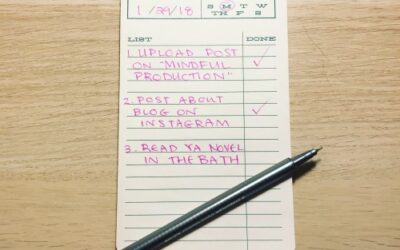 1/29/18
S M T W
TH F S
LIST DONE
1. UPLOAD POST
ON "MINDFUL
PRODUCTION"
2. POST ABOUT
BLOG ON
INSTAGRAM
3. READ YA NOVEL
IN THE BATH